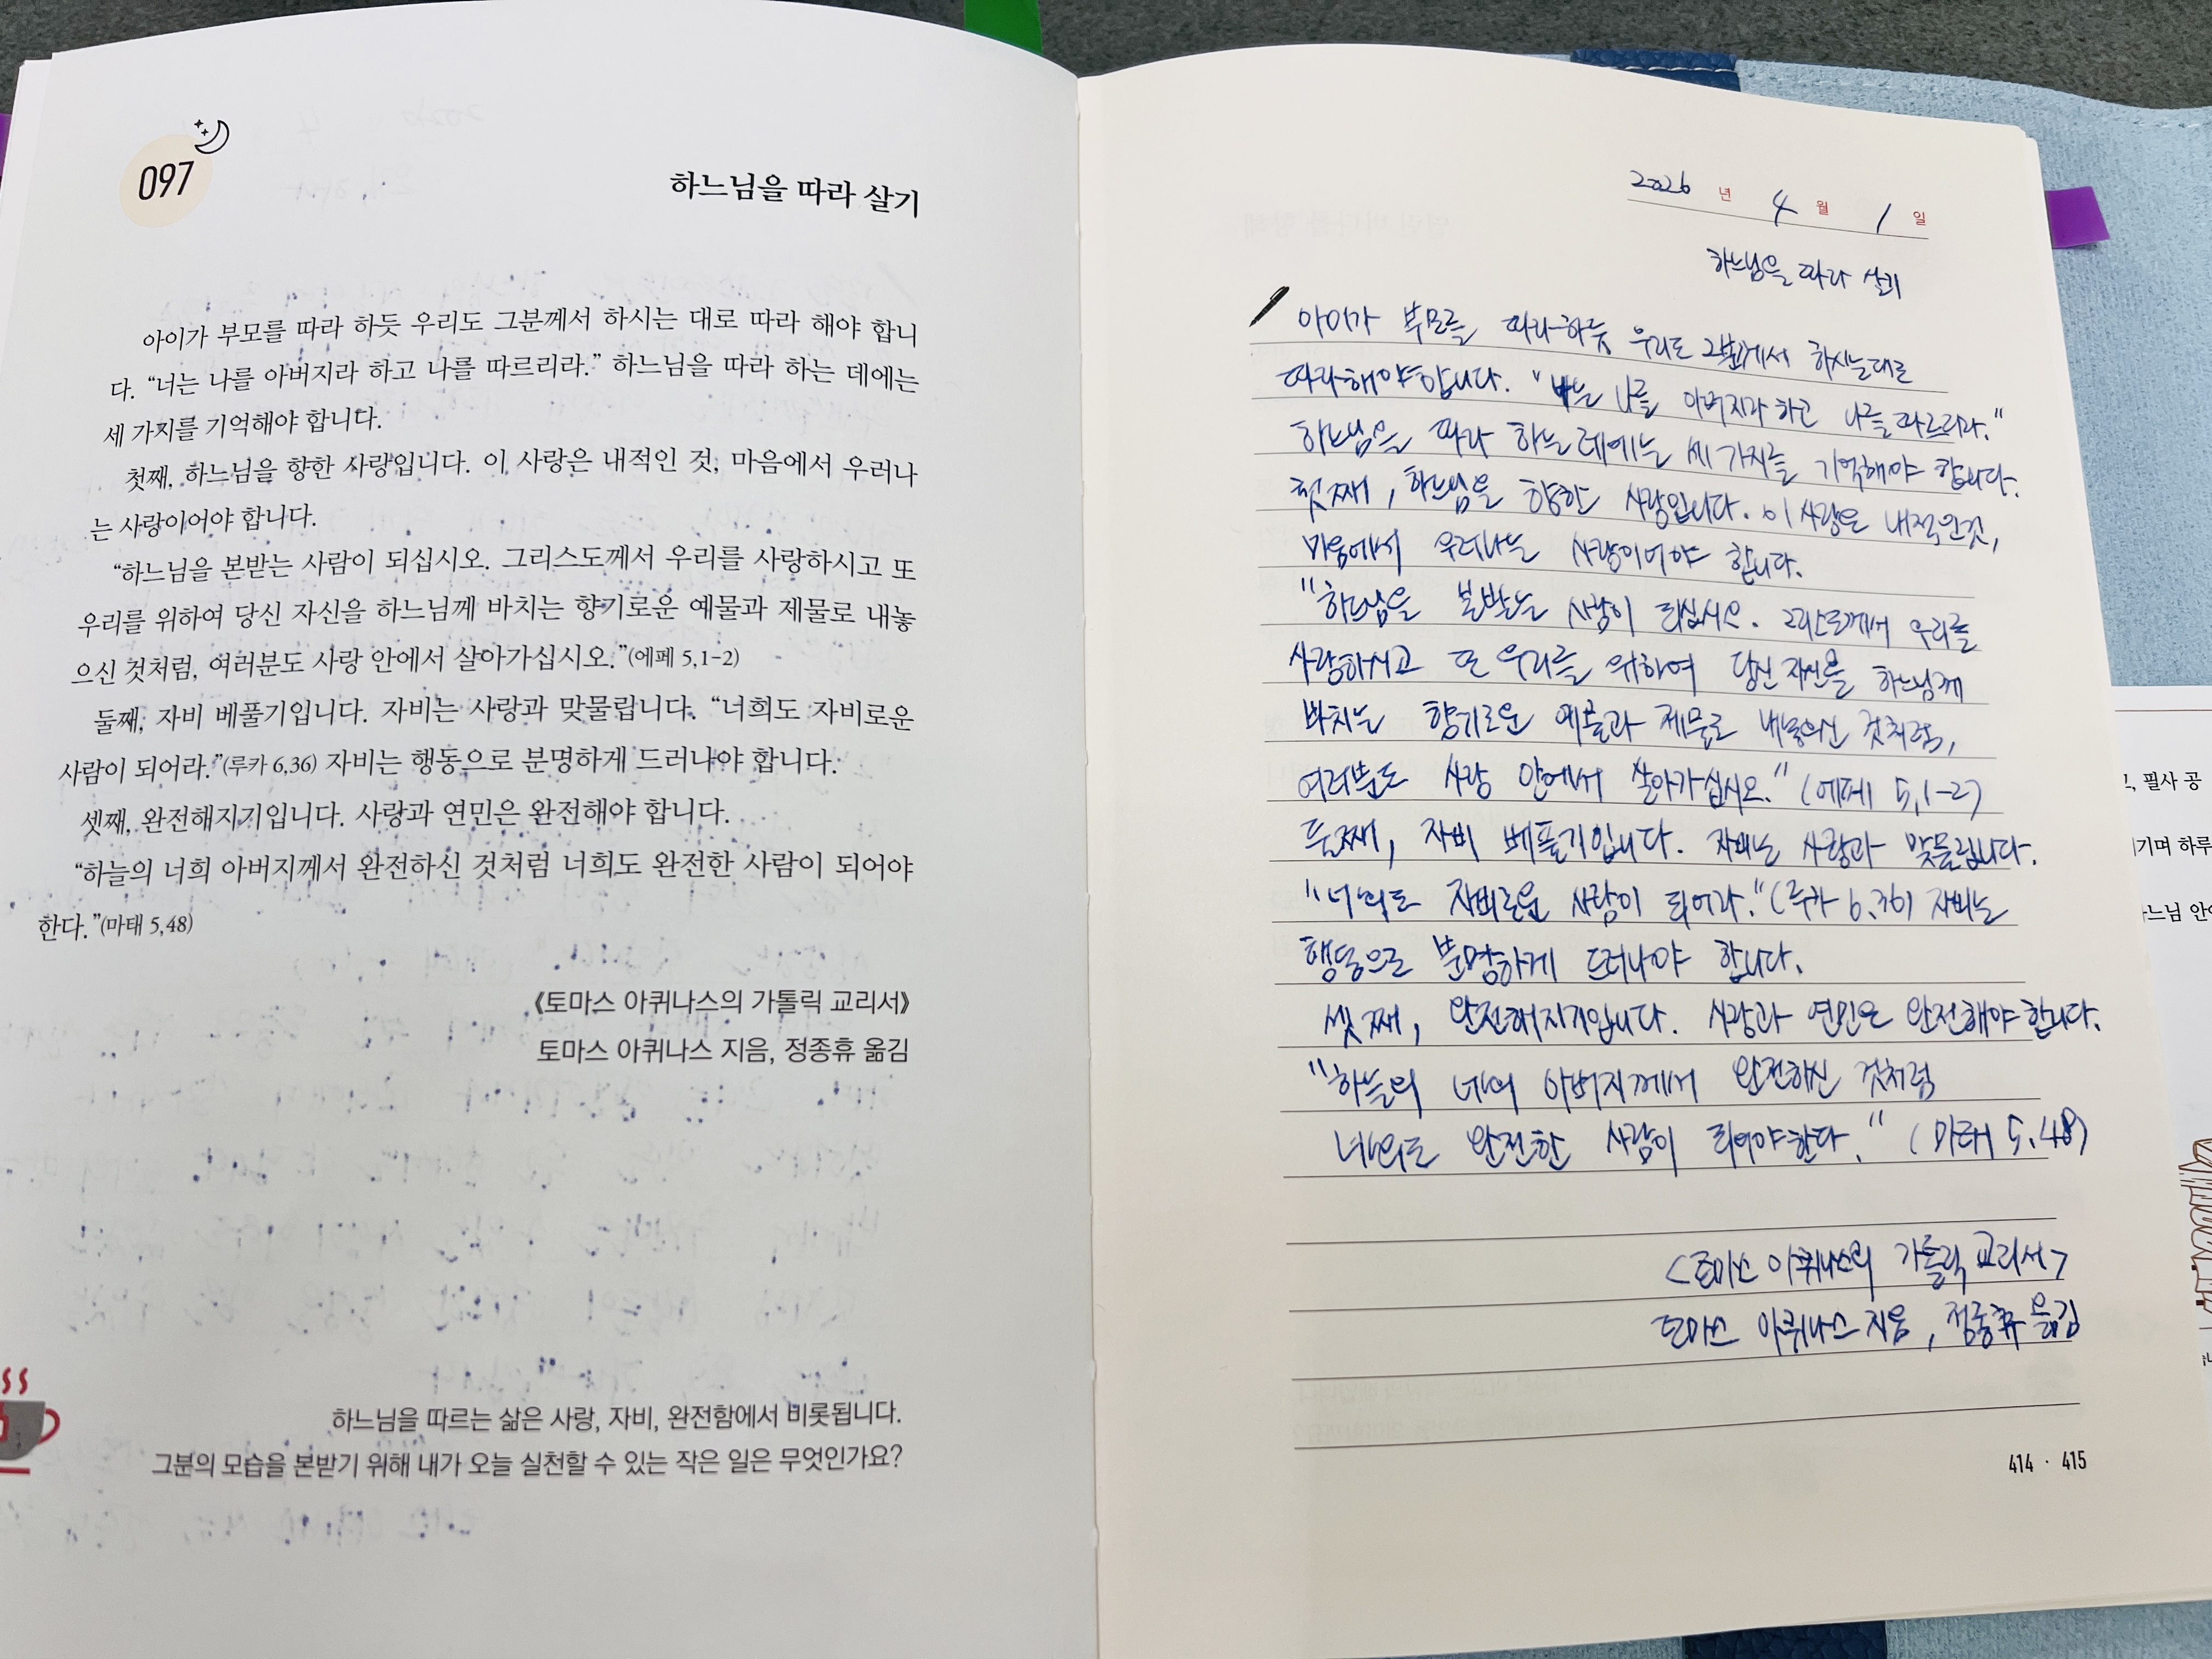 097
하느님을 따라 살기
아이가 부모를 따라 하듯 우리도 그분께서 하시는 대로 따라 해야 합니
다. “너는 나를 아버지라 하고 나를 따르리라.” 하느님을 따라 하는 데에는
세 가지를 기억해야 합니다.
첫째, 하느님을 향한 사랑입니다. 이 사랑은 내적인 것, 마음에서 우러나
는 사랑이어야 합니다.
“하느님을 본받는 사람이 되십시오. 그리스도께서 우리를 사랑하시고 또
우리를 위하여 당신 자신을 하느님께 바치는 향기로운 예물과 제물로 내놓
으신 것처럼, 여러분도 사랑 안에서 살아가십시오.”(에페 5,1-2)
둘째, 자비 베풀기입니다. 자비는 사랑과 맞물립니다. “너희도 자비로운
사람이 되어라.”(루카 6,36) 자비는 행동으로 분명하게 드러나야 합니다.
셋째, 완전해지기입니다. 사랑과 연민은 완전해야 합니다.
“하늘의 너희 아버지께서 완전하신 것처럼 너희도 완전한 사람이 되어야
한다.”(마태 5,48)
《토마스 아퀴나스의 가톨릭 교리서》
토마스 아퀴나스 지음, 정종휴 옮김
하느님을 따르는 삶은 사랑, 자비, 완전함에서 비롯됩니다.
그분의 모습을 본받기 위해 내가 오늘 실천할 수 있는 작은 일은 무엇인가요?
2026 년 4 월 1 일
하느님을 따라 살기
아이가 부모를 따라하듯 우리도 그분께서 하시는대로
따라해야합니다. "너는 나를 아버지라 하고 나를 따르리라."
하느님을 따라 하는데에는 세 가지를 기억해야 합니다.
첫째, 하느님을 향한 사랑입니다. 이 사랑은 내적인것,
마음에서 우러나는 사랑이어야 합니다.
"하느님을 본받는 사람이 되십시오. 그리스도께서 우리를
사랑하시고 또 우리를 위하여 당신 자신을 하느님께
바치는 향기로운 예물과 제물로 내놓으신 것처럼,
여러분도 사랑 안에서 살아가십시오." (에페 5,1-2)
둘째, 자비 베풀기입니다. 자비는 사랑과 맞물립니다.
"너희도 자비로운 사람이 되어라."(루카 6.36) 자비는
행동으로 분명하게 드러나야 합니다.
셋째, 완전해지기입니다. 사랑과 연민은 완전해야 합니다.
"하늘의 너희 아버지께서 완전하신 것처럼
너희도 완전한 사람이 되어야한다." (마태 5.48)
<토마스 아퀴나스의 가톨릭 교리서>
토마스 아퀴나스 지음, 정종휴 옮김
414 · 415
필사 공
기며 하루
느님 안